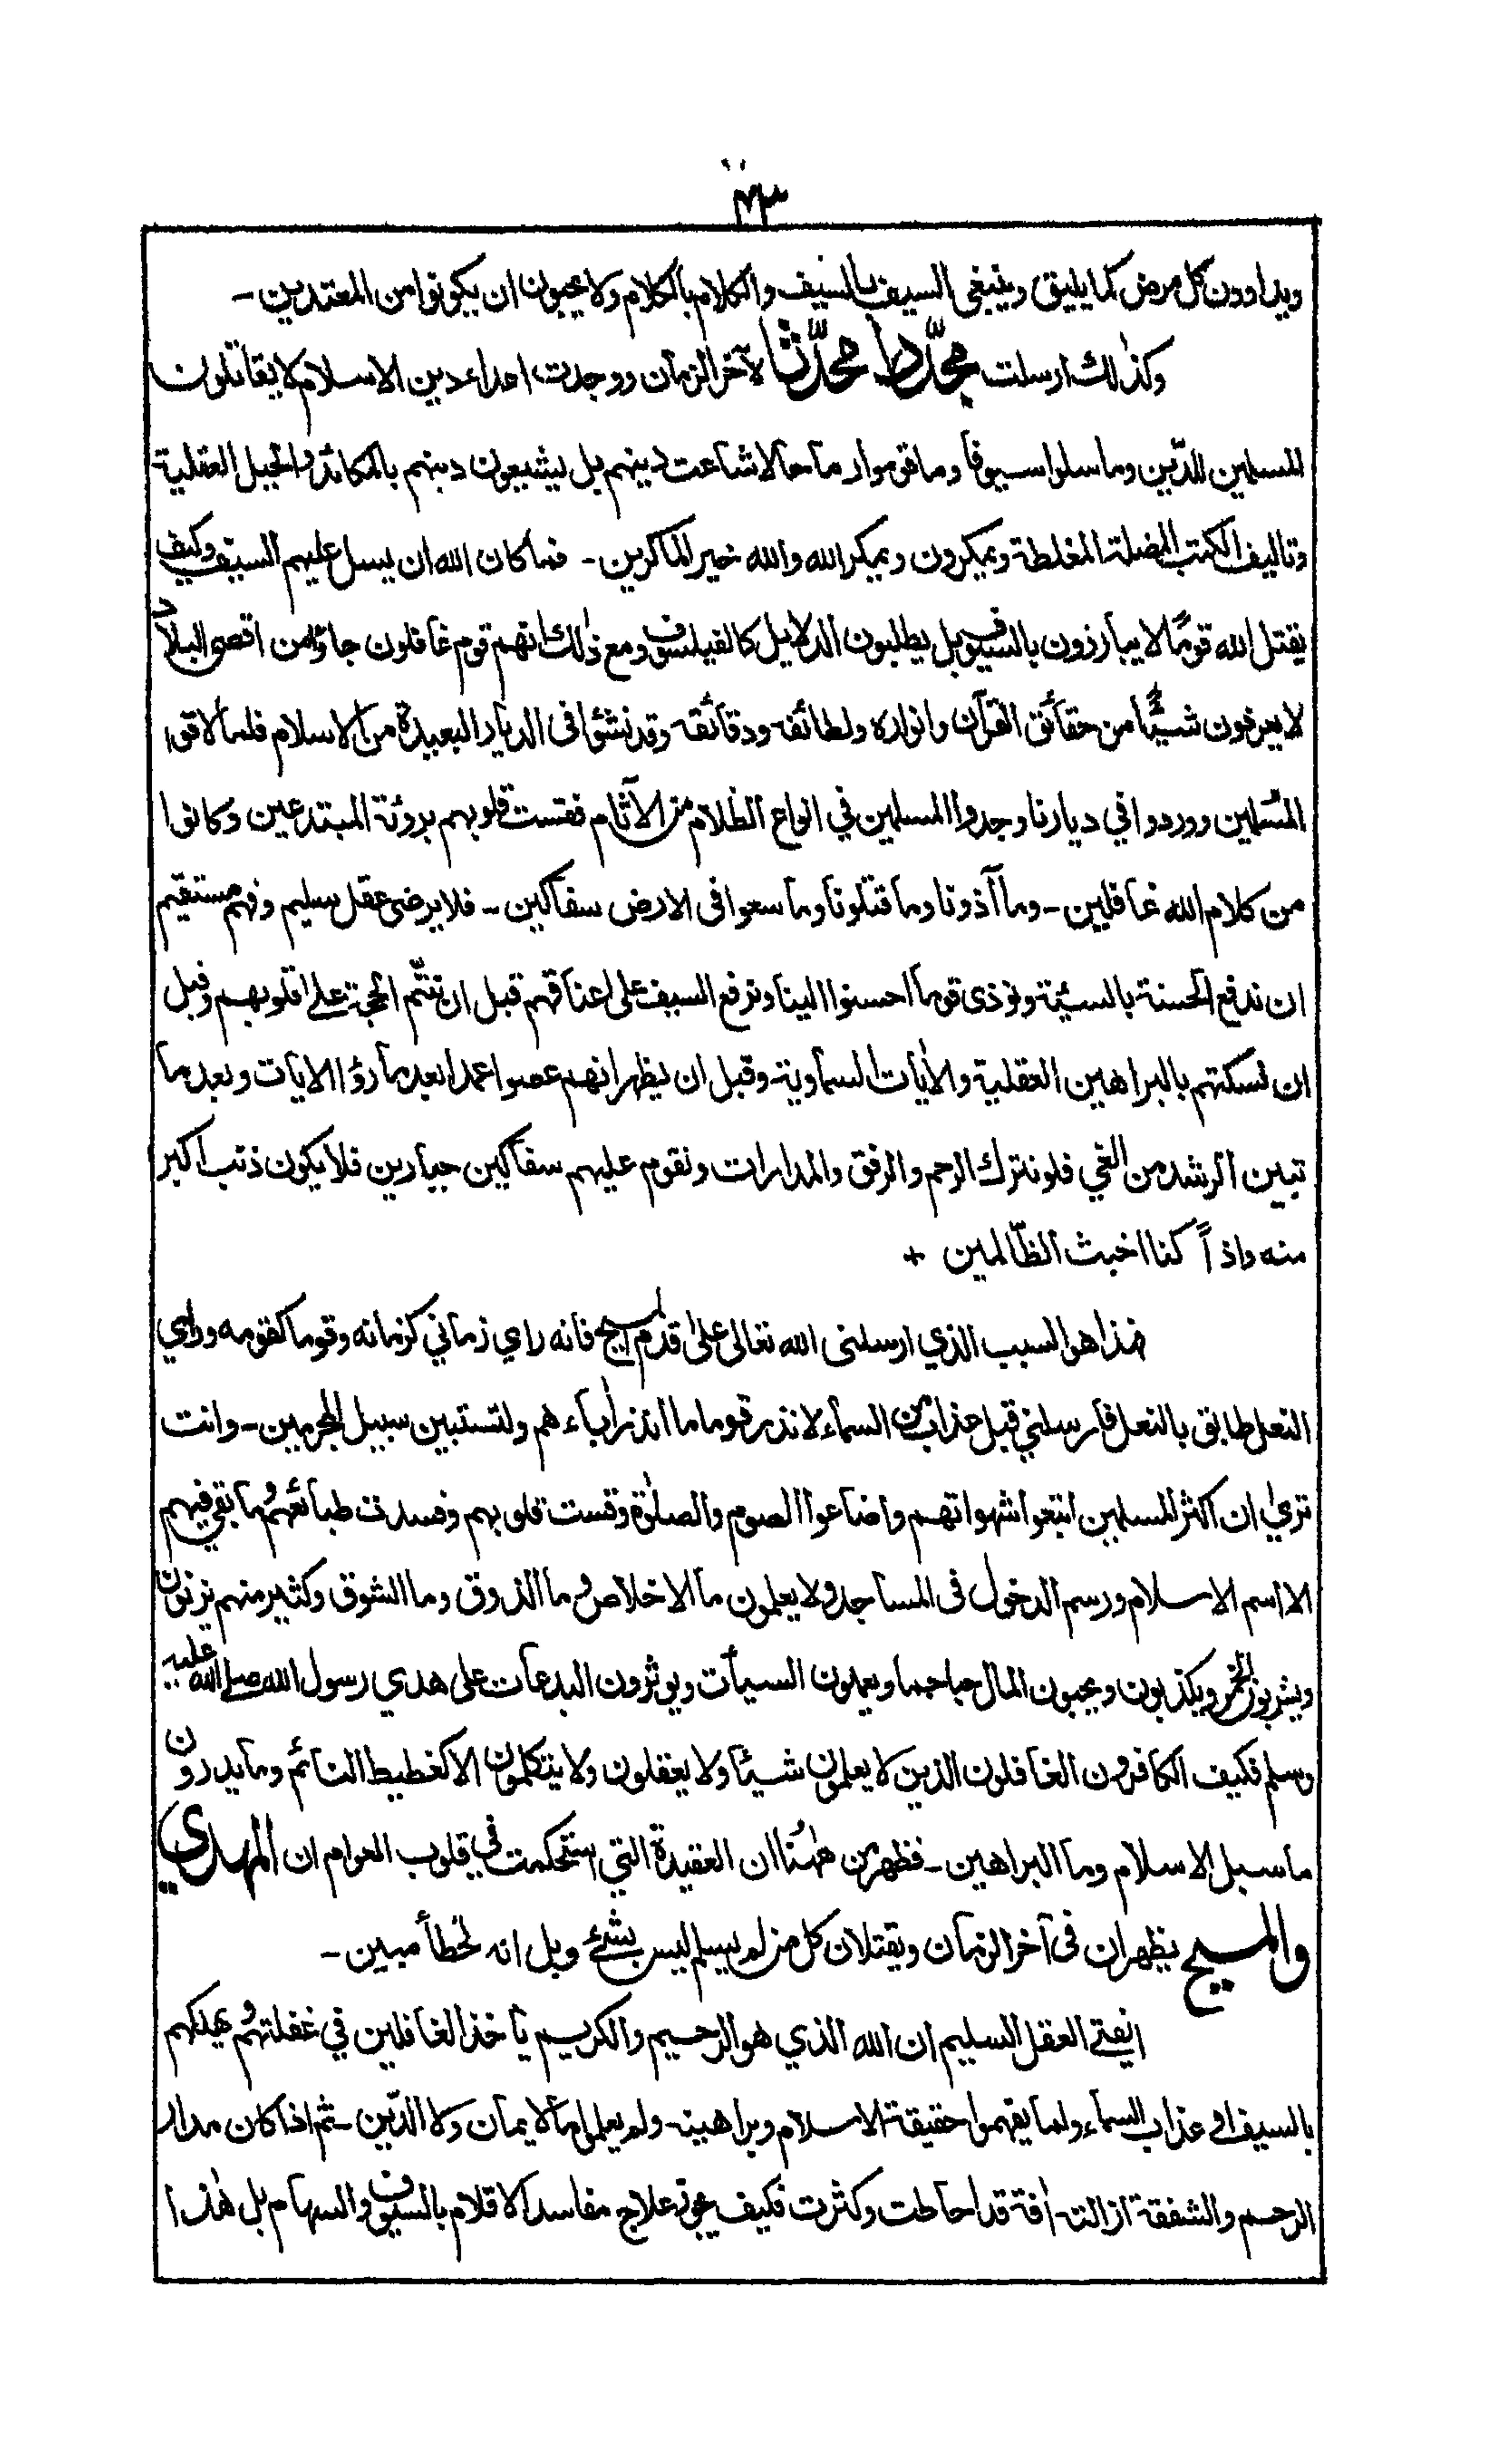 ٧٣
ويداوون كل مرض كما يليق وينبغي السيف بالسيف والكلام بالكلام ولا يحبون ان يكونوا من المعتدين -
وكذالك ارسلت مجدّدا محدّثا لآخر الزمان ووجدت اعداء دين الاسلام لا يقاتلون
المسلمين للدّين وما سلوا سيوفا وما قوموا رماحا لاشاعت دينهم بل يشيعون دينهم بالمكائد والحيل العقلية
وتاليف الكتب المضلة المغلطة ويمكرون ويمكر الله والله خير الماكرين - فما كان الله ان يسل عليهم السيف وكيف
يقتل الله قومًا لا يبارزون بالسيوف بل يطلبون الدلايل كالفيلسوف ومع ذالك انهم قوم غافلون جاؤا من اقصى البلاد
لا يعرفون شيئًا من حقائق القرآن وانواره ولطائفه ودقائقه وقد نشئوا في الديار البعيدة من الاسلام فلما لاقوا
المسلمين ووردوا في ديارنا وجدوا المسلمين في انواع الظلام من الآثام فقست قلوبهم بروئة المبتدعين وكانوا
من كلام الله غافلين - وما آذونا وما قتلونا وما سعوا في الارض سفاكين - فلا يرضى عقل سليم وفهم مستقيم
ان ندفع الحسنة بالسئية ونوذى قوما احسنوا الينا ونرفع السيف على اعناقهم قبل ان تتم الحجة على قلوبهم وقبل
ان نسكتهم بالبراهين العقلية والاٰيات السماوية وقبل ان يظهر انهم عصوا عمدا بعد ما رؤا الايات وبعد ما
تبين الرشد من الغي فلو نترك الرحم والرفق والمدارات ونقوم عليهم سفاكين جبارين فلا يكون ذنب اكبر
منه واذاً كنا اخبث الظّالمين +
فهذا هو السبب الذي ارسلنى الله تعالى علىٰ قدم المسيح فانه راي زماني كزمانه وقوما كقومه وراي
النعل طابق بالنعل فارسلني قبل عذاب من السماء لانذر قوما ما انذر اٰباءهم ولتستبين سبيل المجرمين - وانت
ترىٰ ان اكثر المسلمين اتبعوا شهواتهم واضاعوا الصوم والصلوٰة وقست قلوبهم وفسدت طبائعهم وما بقي فيهم
الا اسم الاسلام ورسم الدخول في المساجد ولا يعلمون ما الاخلاص وما الذوق وما الشوق وكثير منهم يزنون
ويشربون الخمر ويكذبون ويحبون المال حبا جما ويعملون السيأت ويوثرون البدعات على هدي رسول الله صلى الله عليه
وسلم فكيف الكافرون الغافلون الذين لا يعلمون شيئا ولا يعقلون ولا يتكلمون الا كغطيط النائم وما يدرون
ما سبل الاسلام وما البراهين - فظهر من هٰهنا ان العقيدة التي استحكمت في قلوب العوام ان المهدي
والمسيح يظهران في آخر الزمان ويقتلان كل من لم يسلم ليس بشئ وبل انه لخطأ مبين -
ايفتى العقل السليم ان الله الذي هو الرحيم والكريم يأخذ الغافلين في غفلتهم ويهلكهم
بالسيف او عذاب السماء ولما يفهموا حقيقة الاسلام وبراهينه ولم يعلموا ما الايمان ولا الدّين - ثم اذا كان مدار
الرحم والشفقة ازالة اٰفة قد احاطت وكثرت فكيف يجوز علاج مفاسد الاقلام بالسيوف والسهام بل هٰذا